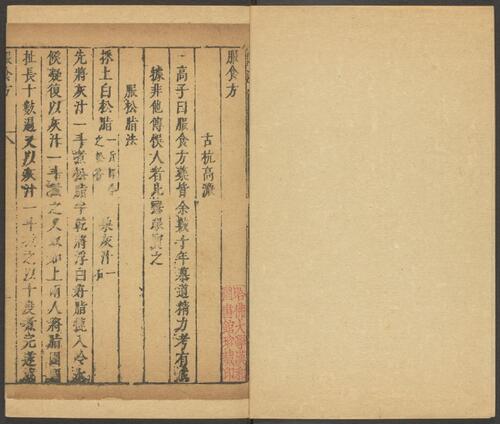 服食方
古杭高濂
高子曰服食方藥皆余數十年慕道精力考有
據非他傳悞人者比
服松脂法
採上白松脂一斤 桑灰汁一
先將灰汁一斗煮松脂半乾將浮白好脂 入冷水
候凝復以灰汁一斗煮之又 如上兩人將脂
扯長十數遍又以灰汁一斗 之以十度煮完遂
服食方
哈佛大學漢和圖書館珍藏印